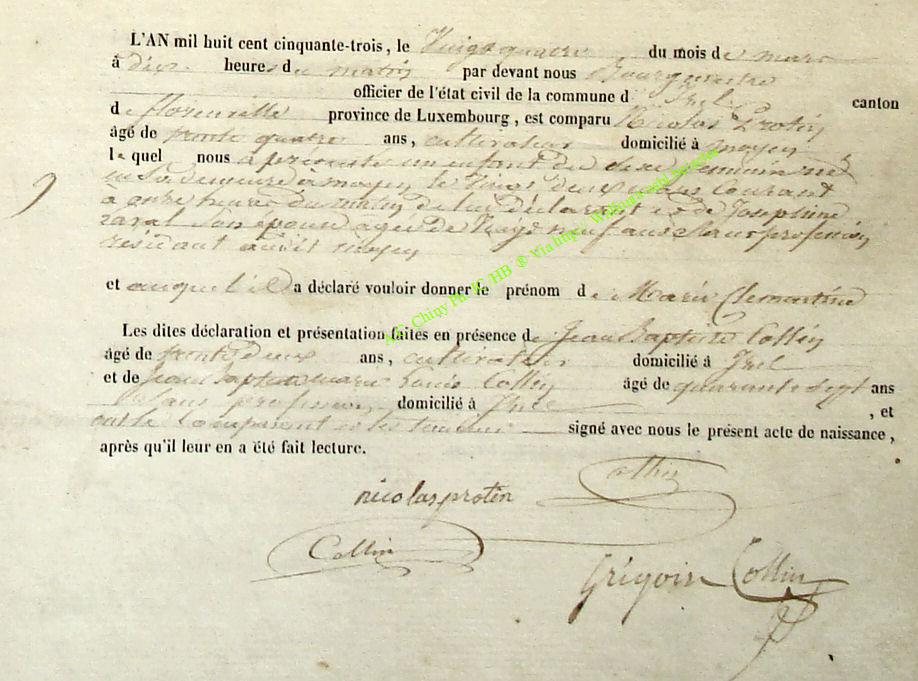 L'AN mil huit cent cinquante-trois, le Vingt quatre du mois de mars
à dix heures du matin par devant nous Bourgmestre
officier de l'état civil de la commune d' Izel canton
de florenville province de Luxembourg, est comparu Nicolas Protin
âgé de trente quatre ans, cultivateur domicilié à moyen
lequel nous a présenté un enfant du sexe féminin né
en sa demeure à moyen le Vingt deux courant
à onze heures du matin de lui déclarant et de Josephine
son épouse agée de Vingt neuf ans sans profession
résidant audit moyen
et auquel il a déclaré vouloir donner le prénom de Marie Clementine
Les dites déclaration et présentation faites en présence de Jean Baptiste Collin
âgé de trente deux ans, cultivateur domicilié à Izel
et de Jean Baptiste marie Louis Collin âgé de quarante sept ans
sans profession domicilié à Izel, et
ont le comparant et les temoins signé avec nous le présent acte de naissance,
après qu'il leur en a été fait lecture.
Collin
nicolas protin
Collin
Grégoire Collin